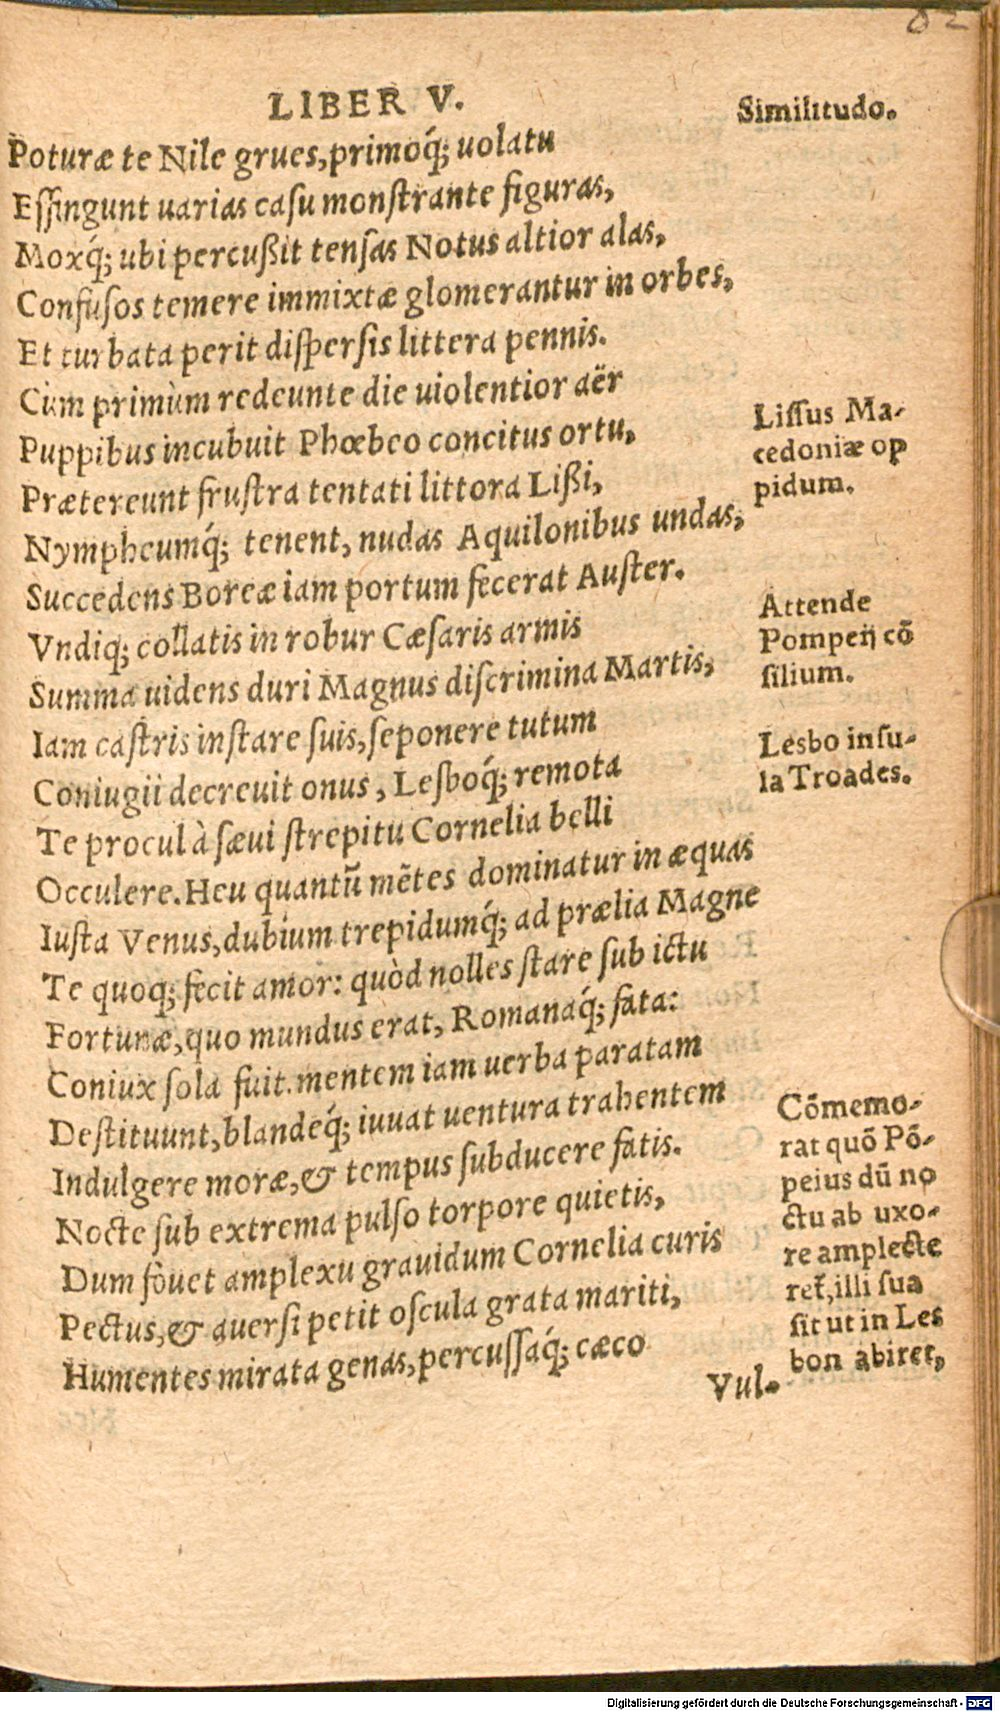 82
LIBER V.
Poturæ te Nile grues, primoq́; uolatu
Effingunt uarias casu monstrante figuras,
Moxq́; ubi percußit tensas Notus altior alas,
Confusos temere immixtæ glomerantur in orbes,
Et turbata perit dispersis littera pennis.
Cùm primùm redeunte die uiolentior aër
Puppibus incubuit Phœbeo concitus ortu,
Prætereunt frustra tentati littora Lißi,
Nympheumq́; tenent, nudas Aquilonibus undas,
Succedens Boreæ iam portum fecerat Auster.
Vndiq; collatis in robur Cæsaris armis
Summa uidens duri Magnus discrimina Martis,
Iam castris instare suis, seponere tutum
Coniugii decreuit onus, Lesboq́; remota
Te procul à sæui strepitu Cornelia belli
Occulere. Heu quantū mētes dominatur in æquas
Iusta Venus, dubium trepidumq́; ad prælia Magne
Te quoq; fecit amor: quòd nolles stare sub ictu
Fortunæ, quo mundus erat, Romanaq́; fata:
Coniux sola fuit. mentem iam uerba paratam
Destituunt, blandeq́; iuuat uentura trahentem
Indulgere moræ, & tempus subducere fatis.
Nocte sub extrema pulso torpore quietis,
Dum fouet amplexu grauidum Cornelia curis
Pectus, & auersi petit oscula grata mariti,
Humentes mirata genas, percussaq́; cæco
Vul-
Similitudo.
Lissus Ma-
cedoniæ op
pidum.
Attende
Pompeij cō
silium.
Lesbo insu-
la Troades.
Cōmemo-
rat quō Pō-
peius dū no
ctu ab uxo-
re amplecte
ret̃, illi sua
sit ut in Les
bon abiret,
Digitalisierung gefördert durch die Deutsche Forschungsgemeinschaft - DFG